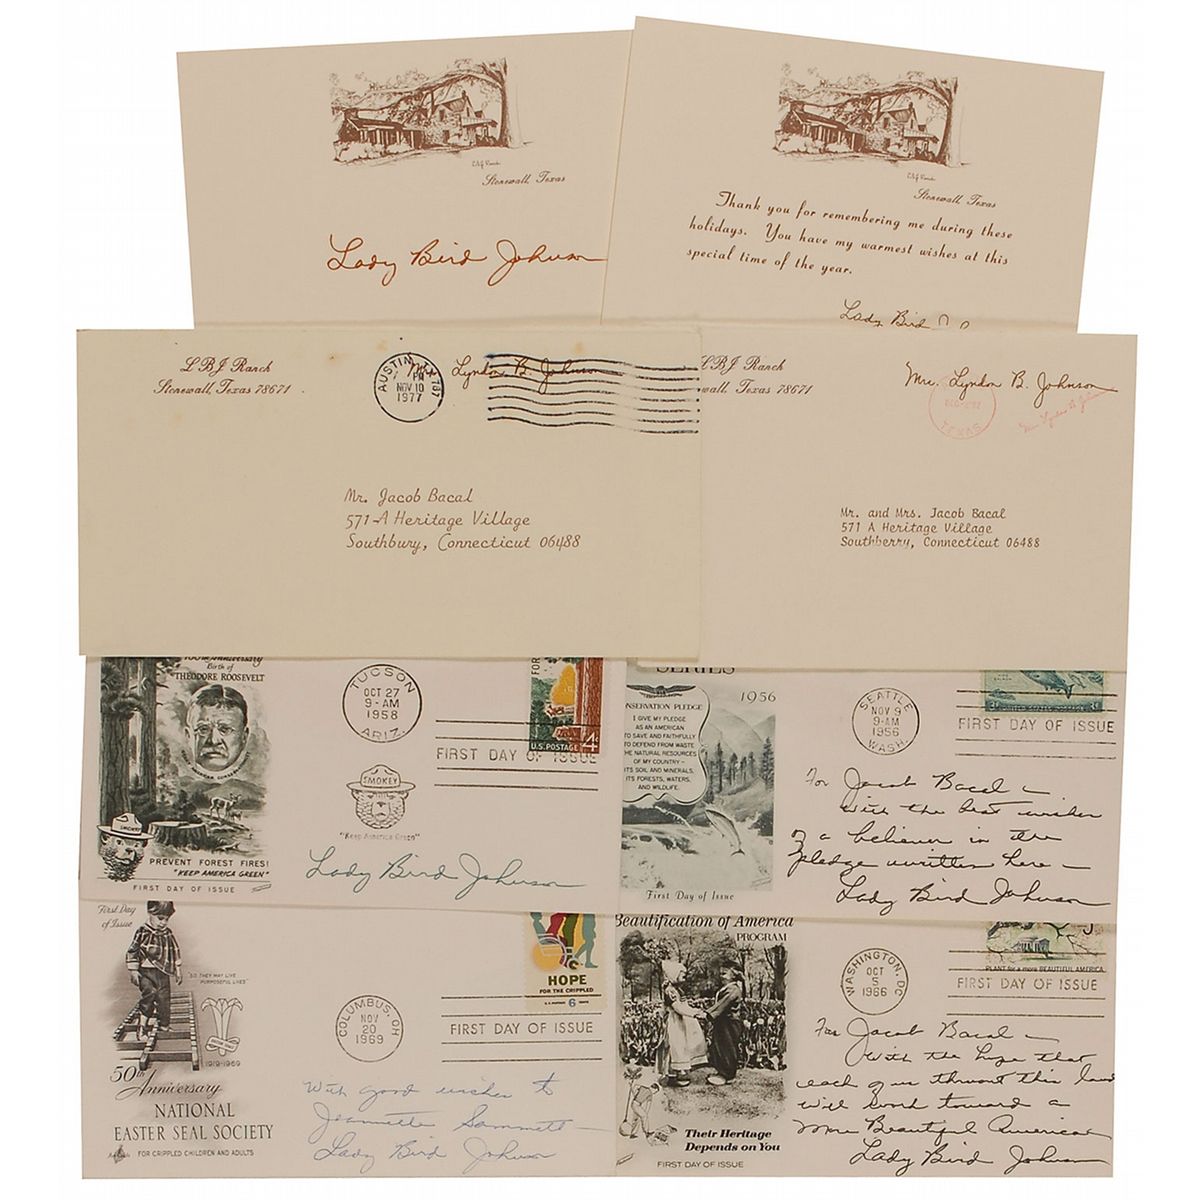 LBJ Ranch
Stonewall, Texas
Lady Bird Johnson
LBJ Ranch
Stonewall, Texas
Thank you for remembering me during these
holidays. You have my warmest wishes at this
special time of the year.
Lady Bird
LBJ Ranch
Stonewall, Texas 78671
AUSTIN, TX 787
PM
NOV 10
1977
Lyndon B. Johnson
Mr. Jacob Bacal
571-A Heritage Village
Southbury, Connecticut 06488
LBJ Ranch
wall, Texas 78671
Mrs. Lyndon B. Johnson
TEXAS
Mr. and Mrs. Jacob Bacal
571 A Heritage Village
Southberry, Connecticut 06488
100th Anniversary
Birth of
THEODORE ROOSEVELT
SMOKEY
PREVENT FOREST FIRES!
"KEEP AMERICA GREEN"
FIRST DAY OF ISSUE
TUCSON
OCT 27
9-AM
1958
ARIZ.
FOR
U.S. POSTAGE 4¢
FIRST DAY OF ISSUE
SMOKEY
"Keep America Green"
Lady Bird Johnson
SERIES
1956
NSERVATION PLEDGE
I GIVE MY PLEDGE
AS AN AMERICAN
TO SAVE AND FAITHFULLY
TO DEFEND FROM WASTE
THE NATURAL RESOURCES
OF MY COUNTRY –
ITS SOIL AND MINERALS,
ITS FORESTS, WATERS,
AND WILDLIFE.
First Day of Issue
SEATTLE
NOV 9
9-AM
1956
WASH.
3¢ UNITED STATES POSTAGE
FIRST DAY OF ISSUE
For Jacob Bacal –
With the best wishes
of a believer in the
pledge written here –
Lady Bird Johnson
First Day
of Issue
"SO THEY MAY LIVE
PURPOSEFUL LIVES"
1919-1969
50th Anniversary
NATIONAL
EASTER SEAL SOCIETY
FOR CRIPPLED CHILDREN AND ADULTS
COLUMBUS, OH
NOV
20
1969
HOPE
FOR THE CRIPPLED
U.S. POSTAGE 6 CENTS
FIRST DAY OF ISSUE
With good wishes to
Jeannette Sammett –
Lady Bird Johnson
Beautification of America
PROGRAM
Their Heritage
Depends on You
FIRST DAY OF ISSUE
WASHINGTON, DC
OCT
5
1966
PLANT for a more BEAUTIFUL AMERICA
FIRST DAY OF ISSUE
For Jacob Bacal –
With the hope that
each of us thruout this land
will work toward a
More Beautiful America
Lady Bird Johnson